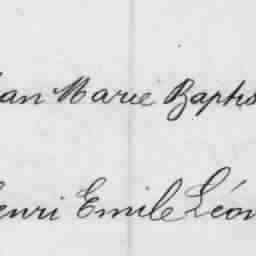 ean Marie Baptis
enri Emile Léon